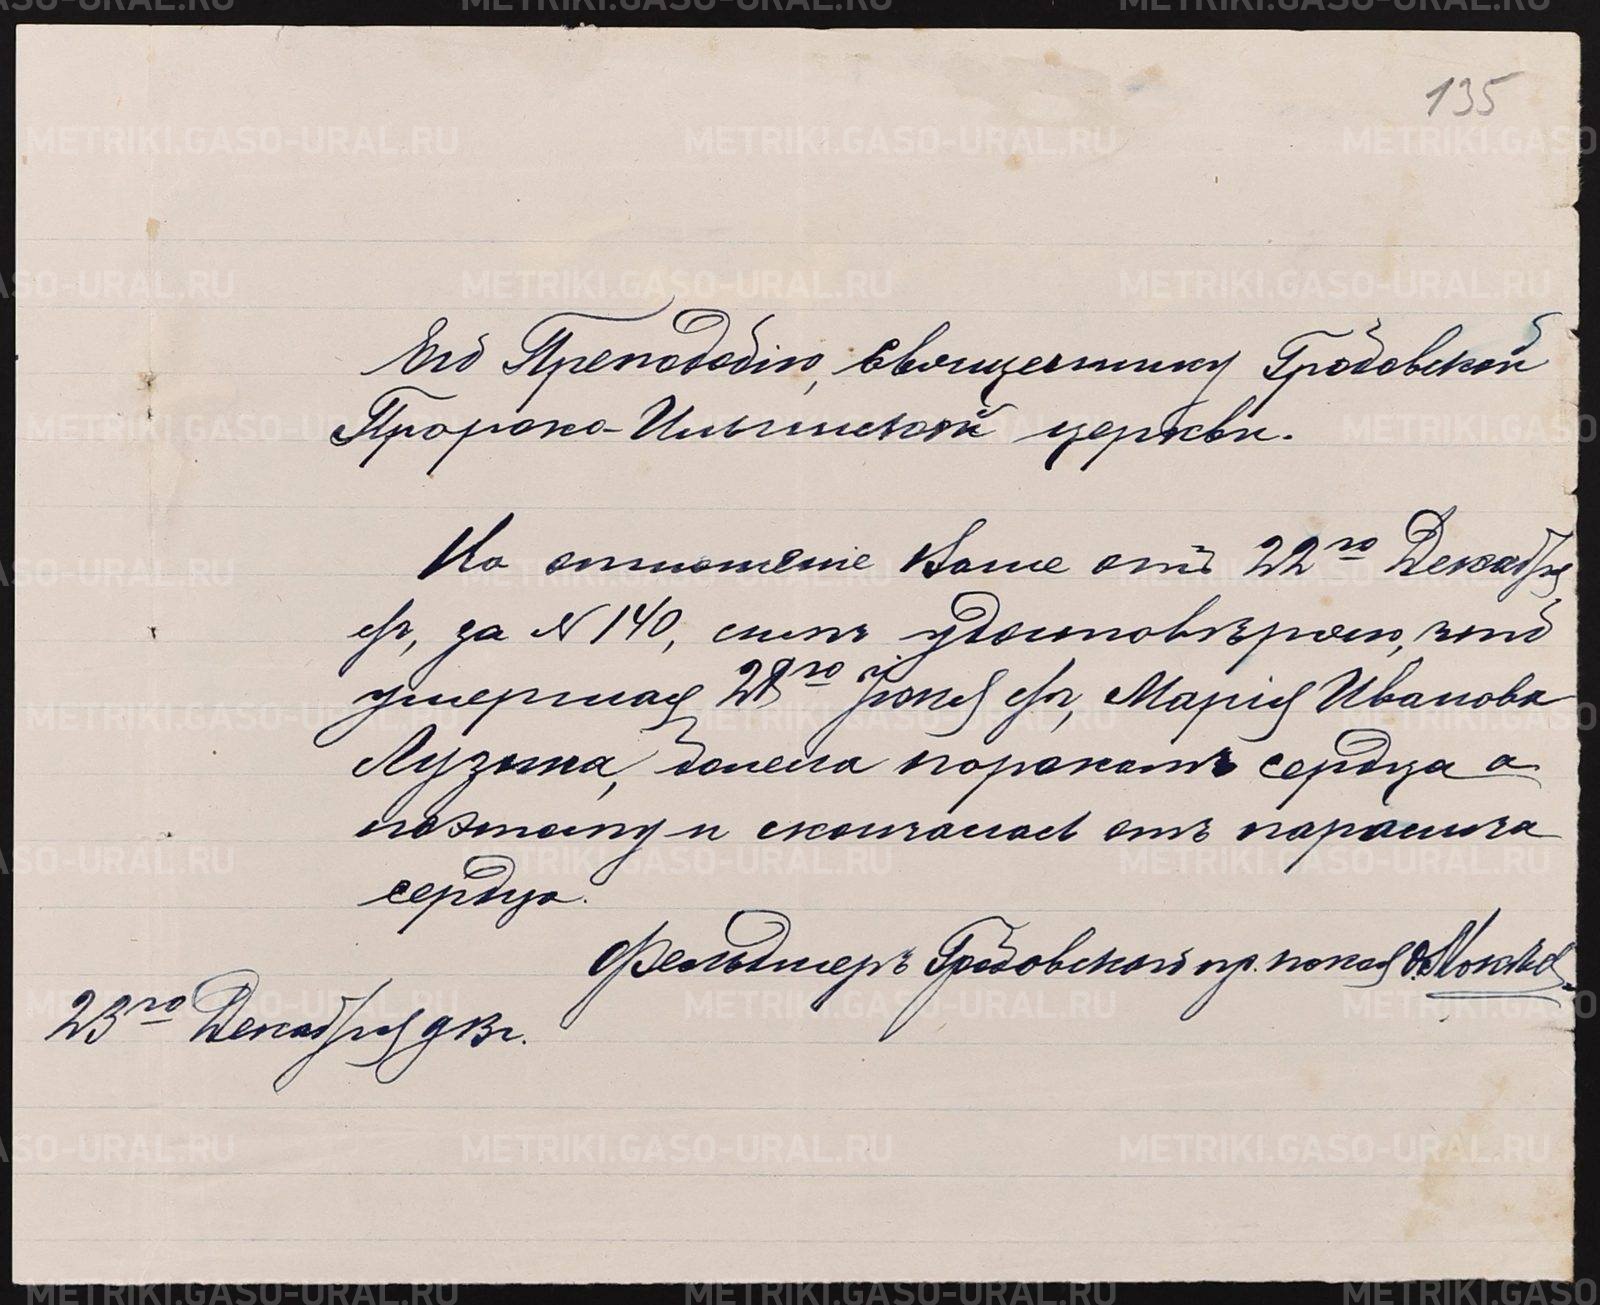 135
Его Преподобію, Священнику Гробовской
Пророко-Ильинской церкви.
На отношеніе Ваше отъ 22го Декабря
с/г, за № 140, симъ удостовѣряю, что
умершая 28го Іюня с/г, Марія Иванова
Лузина, болела порокомъ сердца а
поэтому и скончалась отъ паралича
сердца.
Фельдшеръ Гробовской пр. покоя
23го Декабря 913г.